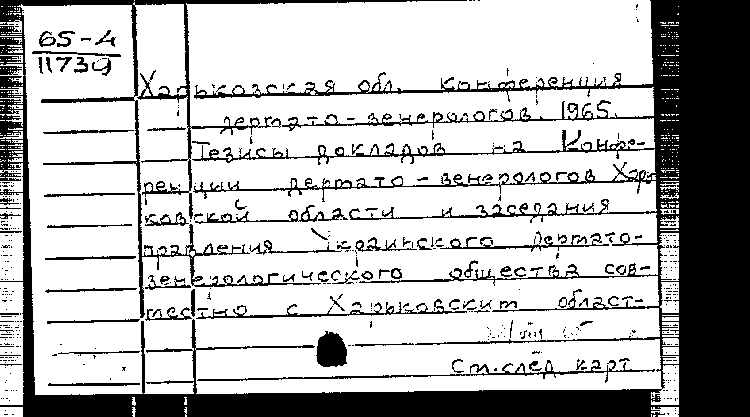 65-4
11739
Харьковская обл. конференция
дермато-венерологов. 1965.
Тезисы докладов на Конфе-
ренции дермато-венерологов Харь-
ковской области и заседания
правления Украинского дермато-
венерологического общества сов-
местно с Харьковским област-
См. след. карт.